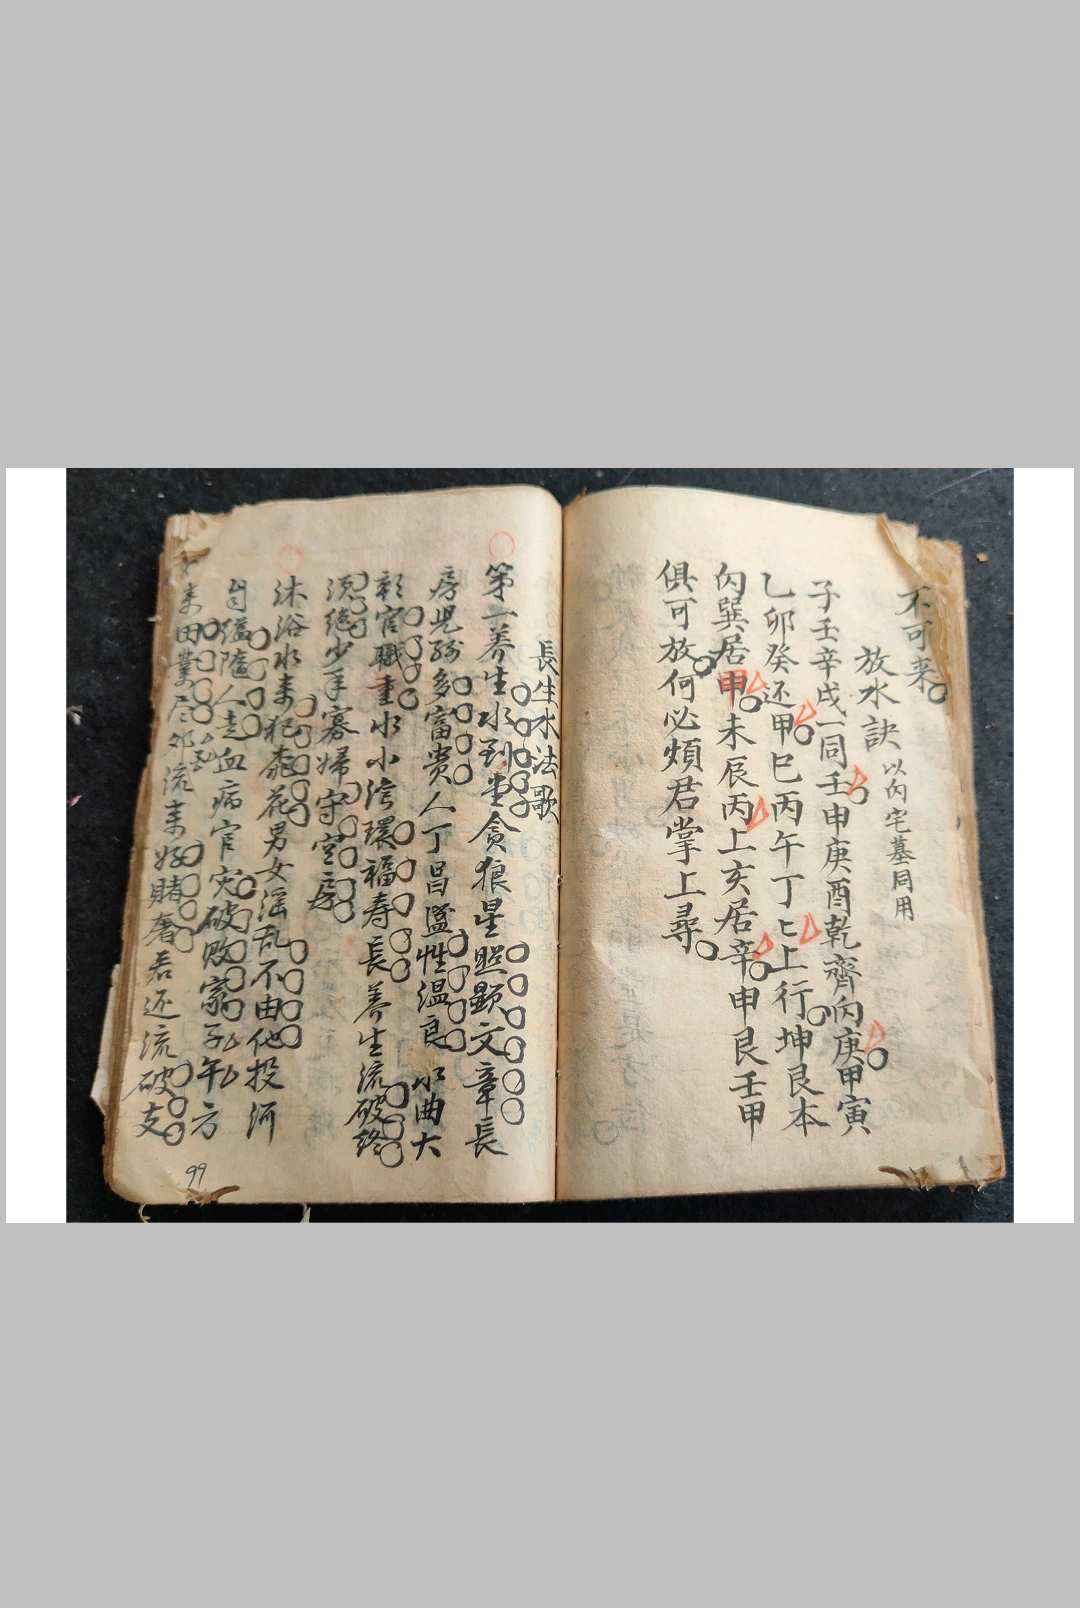 不可来
放水訣 以內宅墓同用
子壬辛戌一同壬申庚酉乾齊丙庚甲寅
乙卯癸还甲巳丙午丁上行坤艮本
丙巽居申未辰丙上亥居辛申艮壬甲
俱可放何必煩君掌上尋
長生水法歌
第一養生水到堂貪狼星照顯文章長
房児孫多富貴人丁昌盛性温良水曲大
彰官職重水小湾環福寿長養生流破終
須絶少年寡婦守空房
沐浴水来犯桃花男女淫乱不由他投河
自縊隨人走血病官灾破敗家子午方
来田業尽卯流来好賭奢若还流破支
99